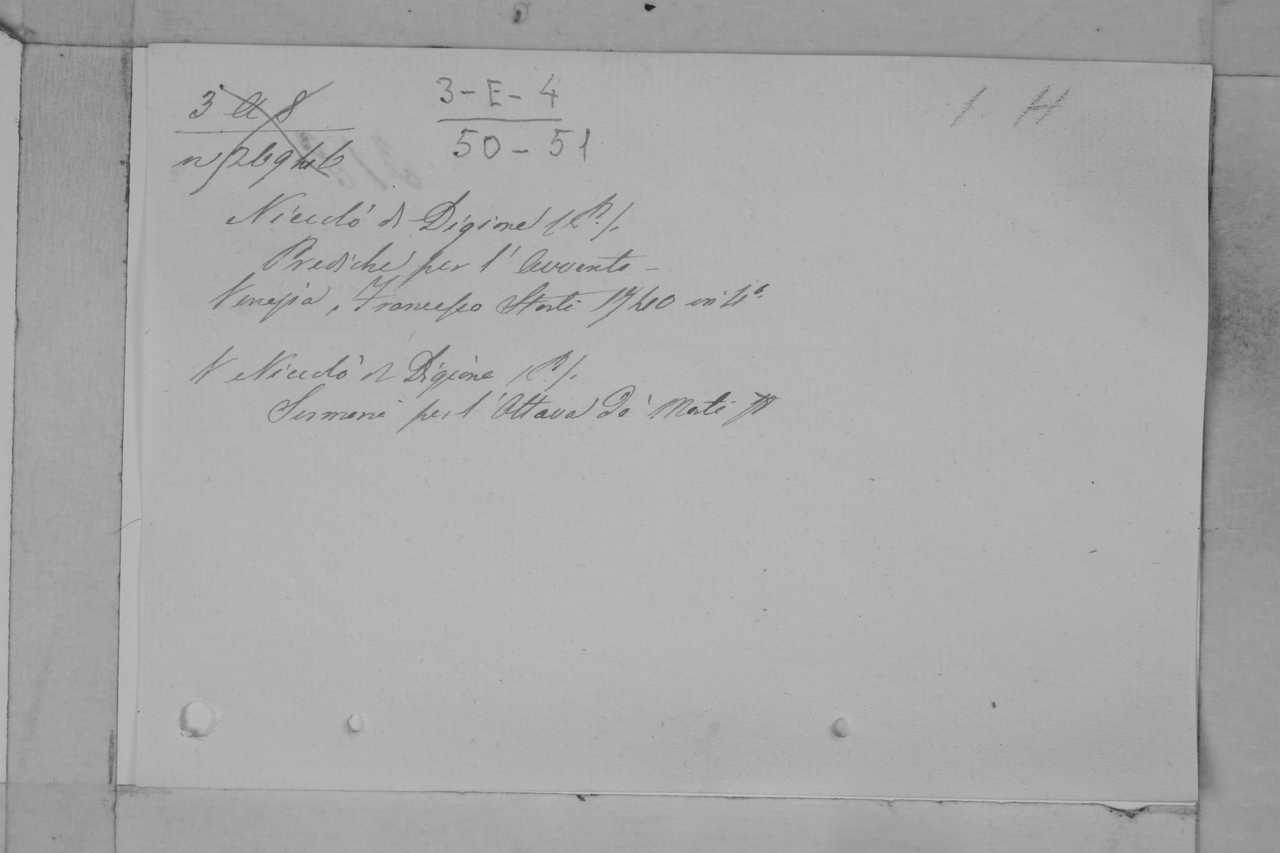 3 a 8
3-E-4
50-51
1. H
Niccolò di Digione (P.)
Prediche per l'Avvento -
Venezia, Francesco Storti 1740 in 4°.
N Niccolò di Digione (P.)
Sermoni per l'Ottava de' Morti